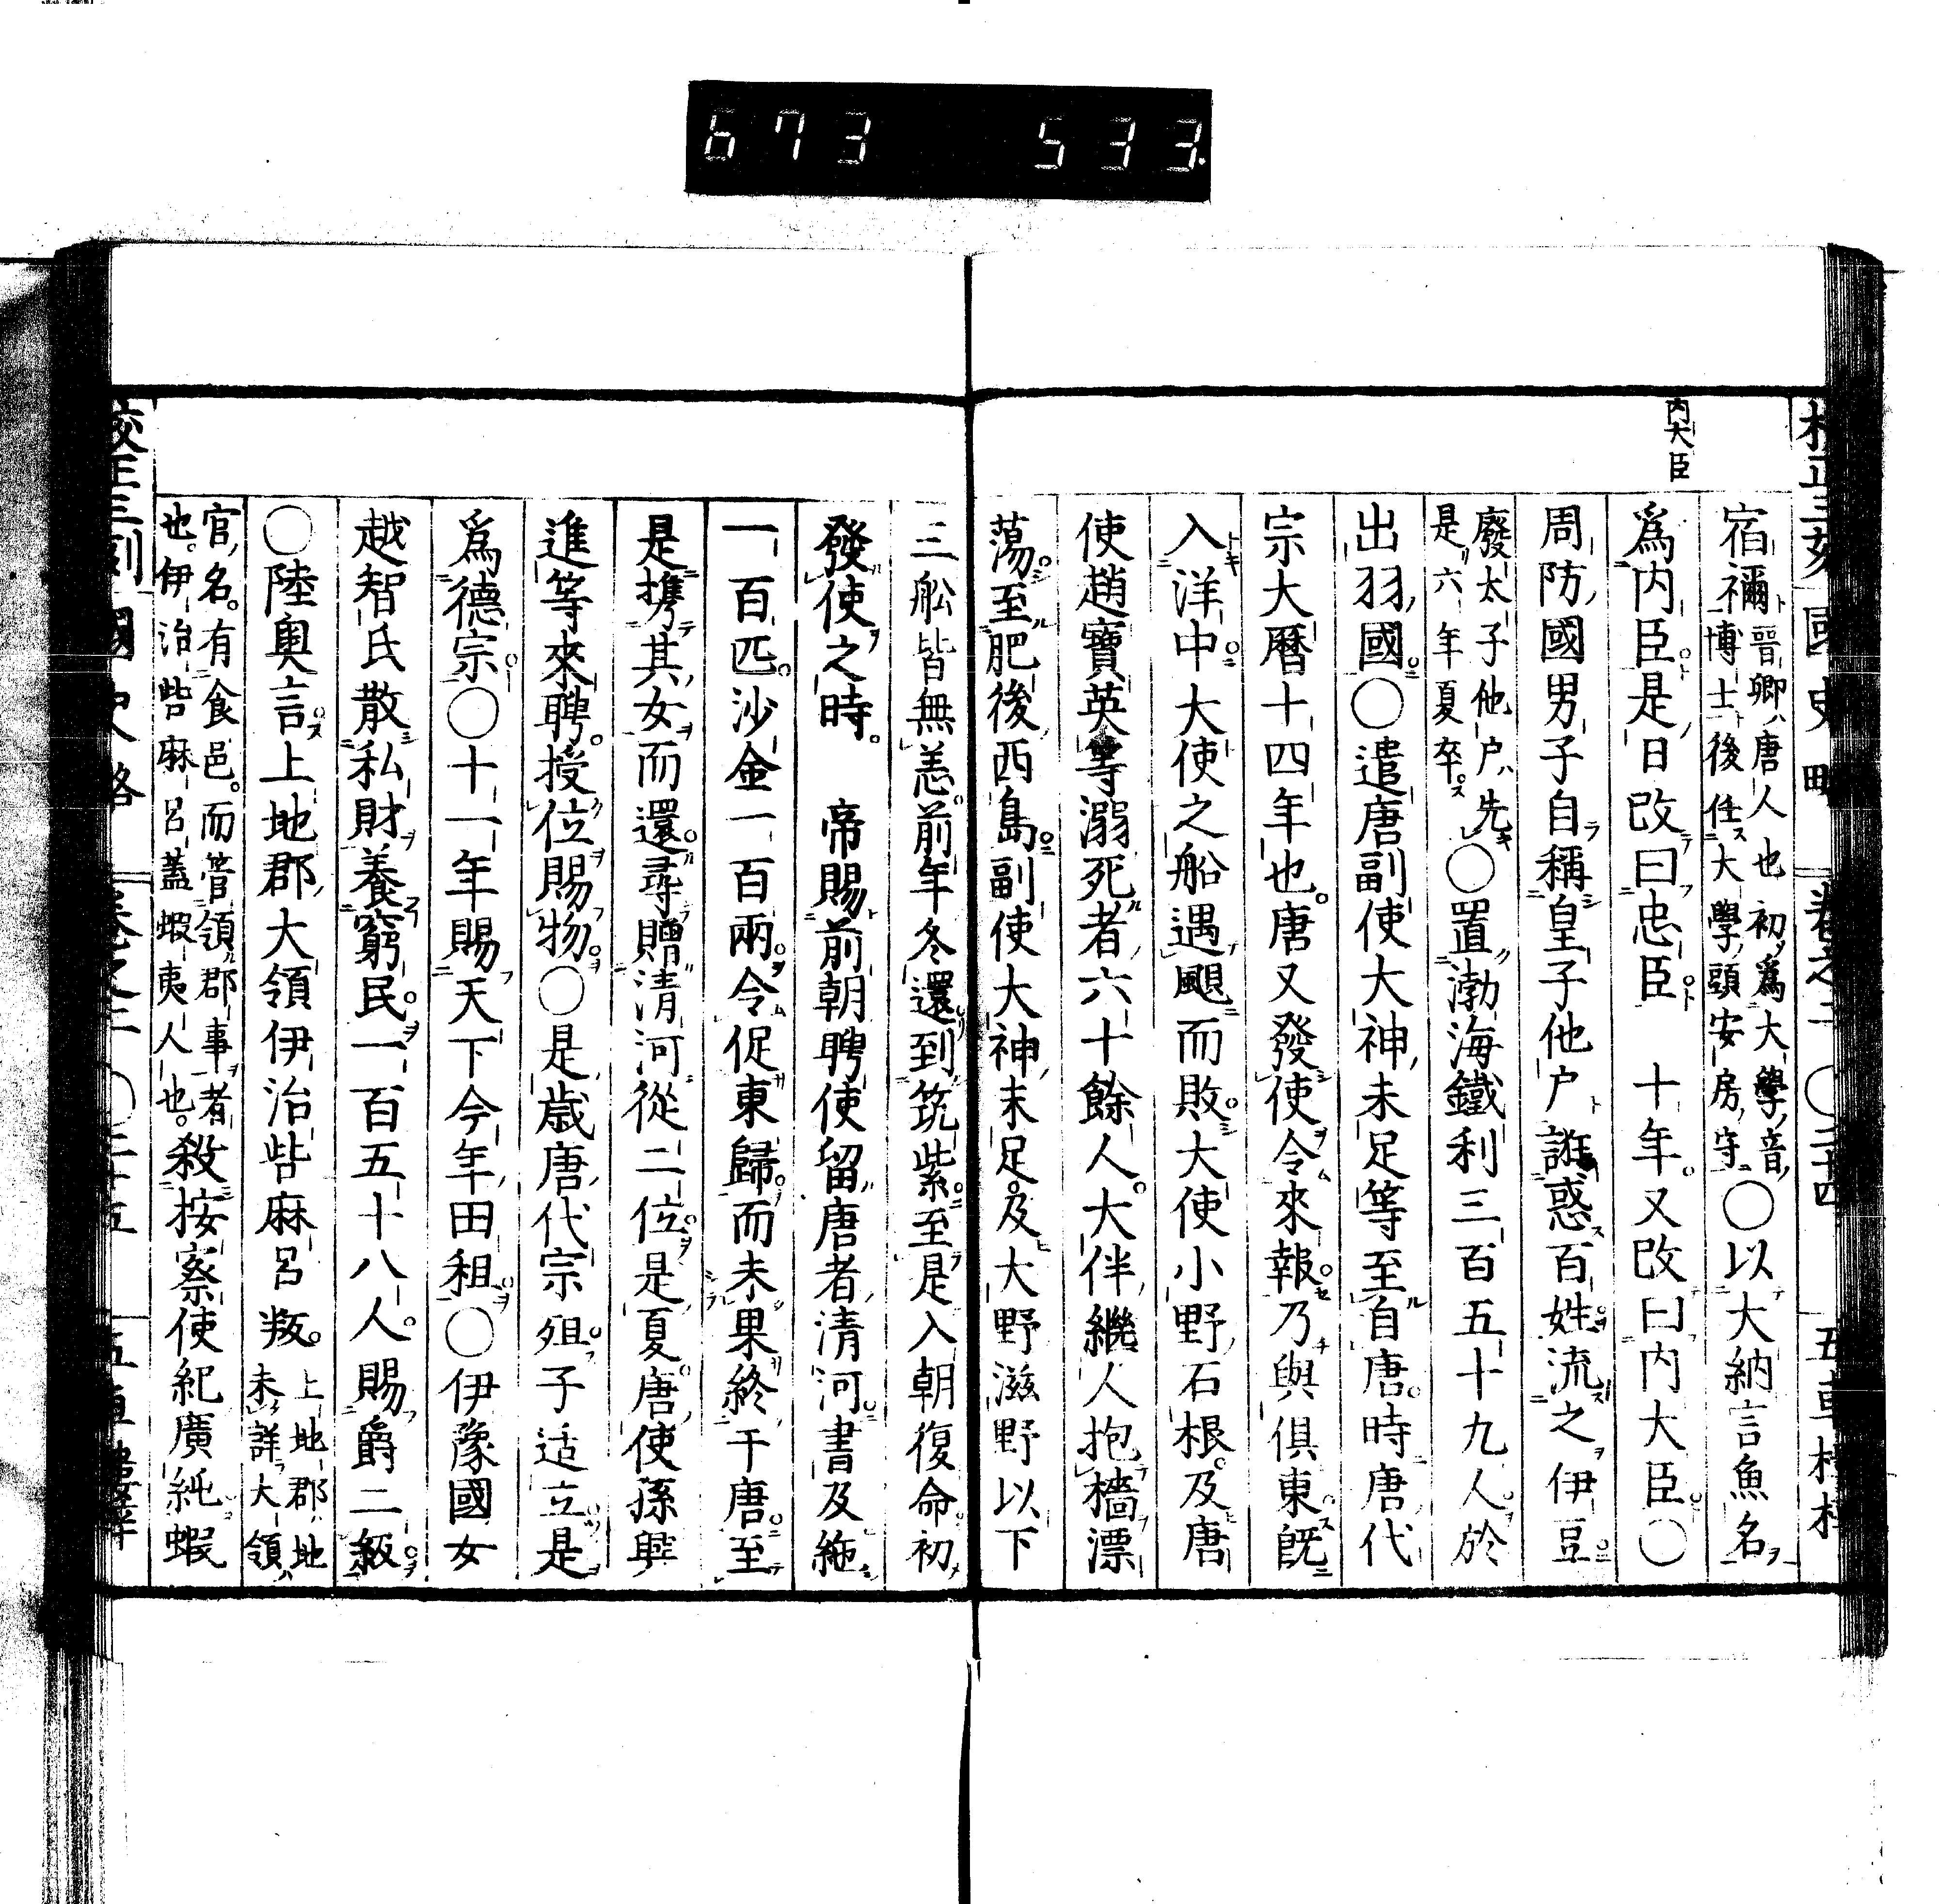 673 533.
內大臣
宿禰晉卿唐人也初爲大學音
博士後任大學頭安房守〇以大納言魚名
爲內臣是日改曰忠臣 十年又改曰內大臣〇
周防國男子自稱皇子他戶誑惑百姓流之伊豆
廢太子他戶先
是六年夏卒〇置渤海鐵利三百五十九人於
出羽國〇遣唐副使大神末足等至自唐時唐代
宗大曆十四年也唐又發使令來報乃與俱東旣
入洋中大使之船遇颶而敗大使小野石根及唐
使趙寶英等溺死者六十餘人大伴繼人抱檣漂
蕩至肥後西島副使大神末足及大野滋野以下
三舩皆無恙前年冬還到筑紫至是入朝復命初
發使之時 帝賜前朝聘使留唐者清河書及絁
一百匹沙金一百兩令促東歸而未果終于唐至
是攜其女而還尋贈清河從二位是夏唐使孫興
進等來聘授位賜物〇是歲唐代宗殂子适立是
爲德宗〇十一年賜天下今年田租〇伊豫國女
越智氏散私財養窮民一百五十八人賜爵二級
〇陸奧言上地郡大領伊治呰麻呂叛上地郡地
未詳大領
官名有食邑而管領郡事者
也伊治呰麻呂蓋蝦夷人也殺按察使紀廣純蝦
國史略